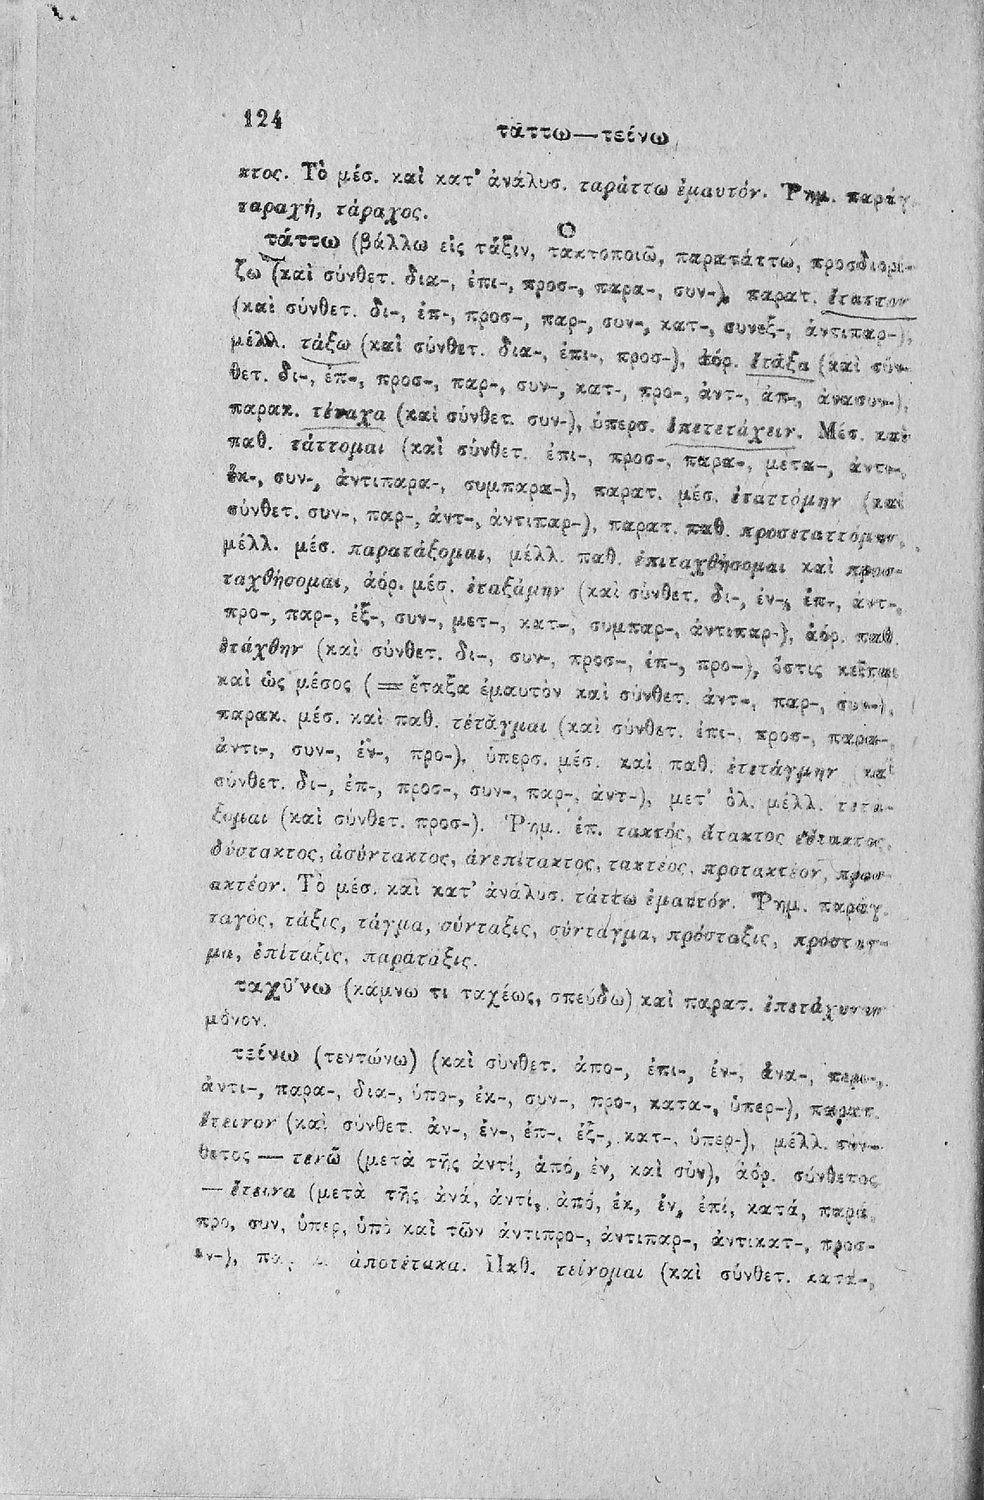 124
τάττω—τείνω
κτος. Τὸ μέσ. καὶ κατ' ἀνάλυσ. ταράττω ἐμαυτόν. Ῥημ. παράγ.
ταραχή, τάραχος.
τάττω (βάλλω εἰς τάξιν, τακτοποιῶ, παρατάττω, προσδιορί-
ζω (καὶ σύνθετ. δια-, ἐπι-, προσ-, παρα-, συν-), παρατ. ἔταττον
(καὶ σύνθετ. δι-, ἐπ-, προσ-, παρ-, συν-, κατ-, συνεξ-, ἀντιπαρ-),
μέλλ. τάξω (καὶ σύνθετ. δια-, ἐπι-, προσ-), ἀόρ. ἔταξα (καὶ σύν-
θετ. δι-, ἐπ-, προσ-, παρ-, συν-, κατ-, προ-, ἀντ-, ἀπ-, ἀνασυν-),
παρακ. τέταχα (καὶ σύνθετ. συν-), ὑπερσ. ἐπετετάχειν. Μέσ. καὶ
παθ. τάττομαι (καὶ σύνθετ. ἐπι-, προσ-, παρα-, μετα-, ἀντι-,
ἐκ-, συν-, ἀντιπαρα-, συμπαρα-), παρατ. μέσ. ἐταττόμην (καὶ
σύνθετ. συν-, παρ-, ἀντ-, ἀντιπαρ-), παρατ. παθ. προσεταττόμην,
μέλλ. μέσ. παρατάξομαι, μέλλ. παθ. ἐπιταχθήσομαι καὶ προσ-
ταχθήσομαι, ἀόρ. μέσ. ἐταξάμην (καὶ σύνθετ. δι-, ἐν-, ἐπ-, ἀντ-,
προ-, παρ-, ἐξ-, συν-, μετ-, κατ-, συμπαρ-, ἀντιπαρ-), ἀόρ. παθ.
ἐτάχθην (καὶ σύνθετ. δι-, συν-, προσ-, ἐπ-, προ-), ὅστις κεῖται
καὶ ὡς μέσος (=ἔταξα ἐμαυτὸν καὶ σύνθετ. ἀντ-, παρ-, συν-),
παρακ. μέσ. καὶ παθ. τέτάγμαι (καὶ σύνθετ. ἐπι-, προσ-, παρα-,
ἀντι-, συν-, ἐν-, προ-), ὑπερσ. μέσ. καὶ παθ. ἐτετάγμην (καὶ
σύνθετ. δι-, ἐπ-, προσ-, συν-, παρ-, ἀντ-), μετ' ὀλ. μέλλ. τετά-
ξομαι (καὶ σύνθετ. προσ-). Ῥημ. ἐπ. τακτός, ἄτακτος εὔτακτος,
δύστακτος, ἀσύντακτος, ἀνεπίτακτος, τακτέος, προτακτέον, προσ-
ακτέον. Τὸ μέσ. καὶ κατ' ἀνάλυσ. τάττω ἐμαυτόν. Ῥημ. παράγ.
ταγός, τάξις, τάγμα, σύνταξις, σύνταγμα, πρόσταξις, προσταγ-
μα, ἐπίταξις, παράταξις.
ταχῦνω (κάμνω τι ταχέως, σπεύδω) καὶ παρατ. ἐπετάχυνον
μόνον.
τείνω (τεντώνω) (καὶ σύνθετ. ἀπο-, ἐπι-, ἐν-, ἀνα-, περι-,
ἀντι-, παρα-, δια-, ὑπο-, ἐκ-, συν-, προ-, κατα-, ὑπερ-), παρατ.
ἔτεινον (καὶ σύνθετ. ἀν-, ἐν-, ἐπ-, ἐξ-, κατ-, ὑπερ-), μέλλ. σύν-
θετος — τενῶ (μετὰ τῆς ἀντί, ἀπό, ἐν, καὶ σὺν), ἀόρ. σύνθετος
— ἔτεινα (μετὰ τῆς ἀνά, ἀντί, ἀπό, ἐκ, ἐν, ἐπί, κατά, παρά,
προ, συν, ὑπερ, ὑπὸ καὶ τῶν ἀντιπρο-, ἀντιπαρ-, ἀντικατ-, προσ-
εν-), ἀποτέτακα. Παθ. τείνομαι (καὶ σύνθετ. κατα-,